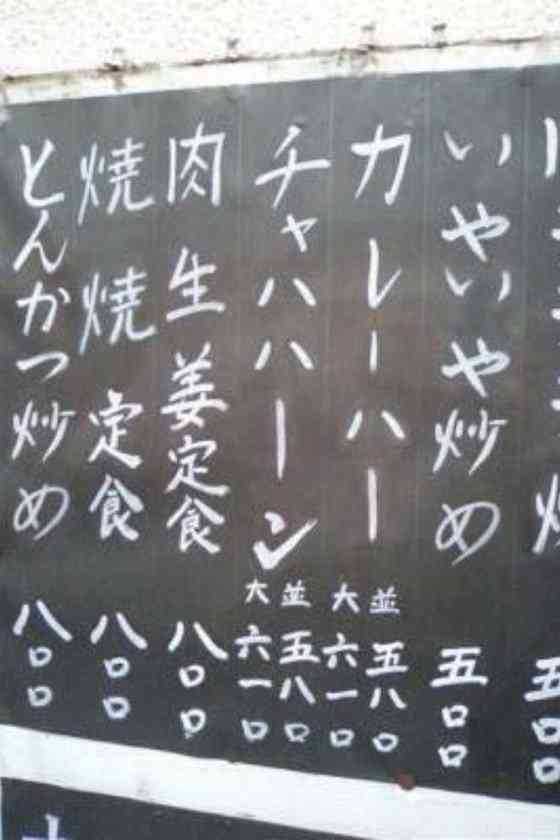 いやいや炒め 五〇〇
カレーハー 並五八〇
大六一〇
チャハハーン 並五八〇
大六一〇
肉生姜定食 八〇〇
焼焼定食 八〇〇
とんかつ炒め 八〇〇